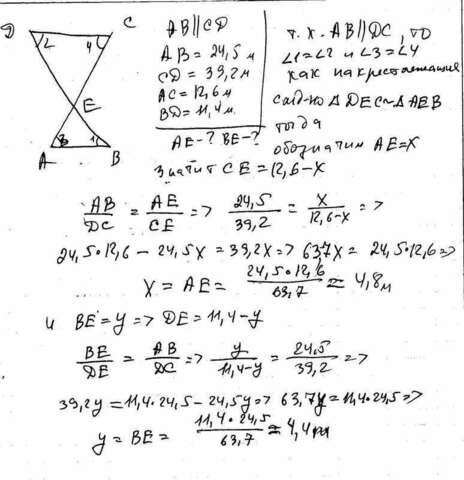 D C
2 4
E
3 1
A B
AB||CD
AB = 24,5 м
CD = 39,2 м
AC = 12,6 м
BD = 11,4 м.
AE - ? BE - ?
т.к. AB||DC, то
∠1=∠2 и ∠3=∠4
как накрестлежащие
след-но ΔDEC~ΔAEB
тогда
обозначим AE=X
значит CE = 12,6-X
AB/DC = AE/CE => 24,5/39,2 = X/12,6-X =>
24,5·12,6 - 24,5X = 39,2X => 63,7X = 24,5·12,6 =>
X = AE = 24,5·12,6/63,7 ≈ 4,8 м
и BE = y => DE = 11,4-y
BE/DE = AB/DC => y/11,4-y = 24,5/39,2 =>
39,2y = 11,4·24,5 - 24,5y => 63,7y = 11,4·24,5 =>
y = BE = 11,4·24,5/63,7 ≈ 4,4 м